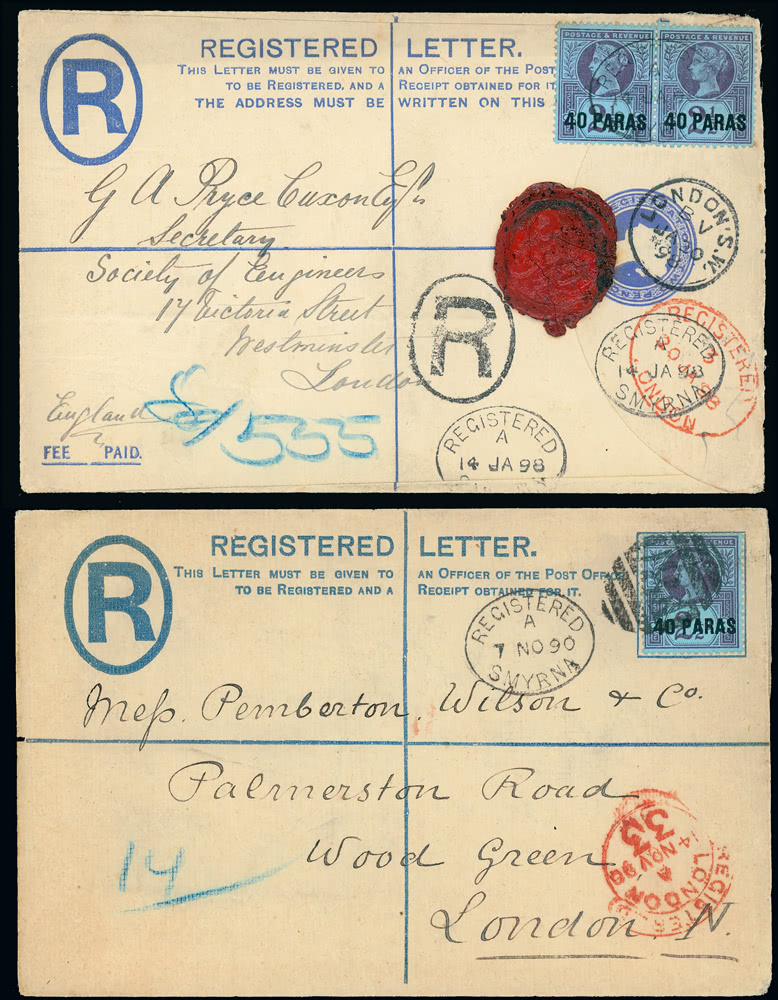 REGISTERED LETTER.
THIS LETTER MUST BE GIVEN TO AN OFFICER OF THE POST
TO BE REGISTERED, AND A RECEIPT OBTAINED FOR IT.
THE ADDRESS MUST BE WRITTEN ON THIS
R
POSTAGE & REVENUE
POSTAGE & REVENUE
40 PARAS
40 PARAS
G A Pryce Cuxon Esqr
Secretary
Society of Engineers
17 Victoria Street
Westminster
London
England
FEE PAID.
535
R
LONDON.S.W.
BV
JA 20
98
REGISTERED
LONDON
REGISTERED
A
14 JA 98
SMYRNA
REGISTERED
A
14 JA 98
REGISTERED LETTER.
THIS LETTER MUST BE GIVEN TO AN OFFICER OF THE POST OFFICE
TO BE REGISTERED AND A RECEIPT OBTAINED FOR IT.
R
POSTAGE & REVENUE
40 PARAS
REGISTERED
A
7 NO 90
SMYRNA
Mess. Pemberton, Wilson & Co.
Palmerston Road
Wood Green
London. N.
14
REGISTERED
LONDON
14 NOV 90
33